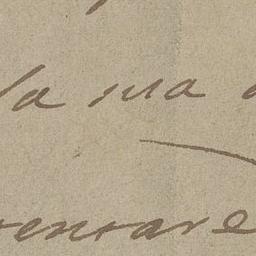 la sua
ventare